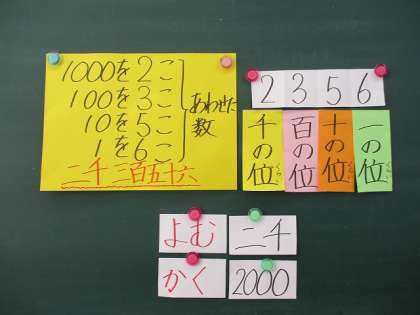 1000を2こ
100を3こ
10を5こ
1を6こ
あわせた数
二千三百五十六
2 3 5 6
千の位
百の位
十の位
一の位
よむ
二千
かく
2000